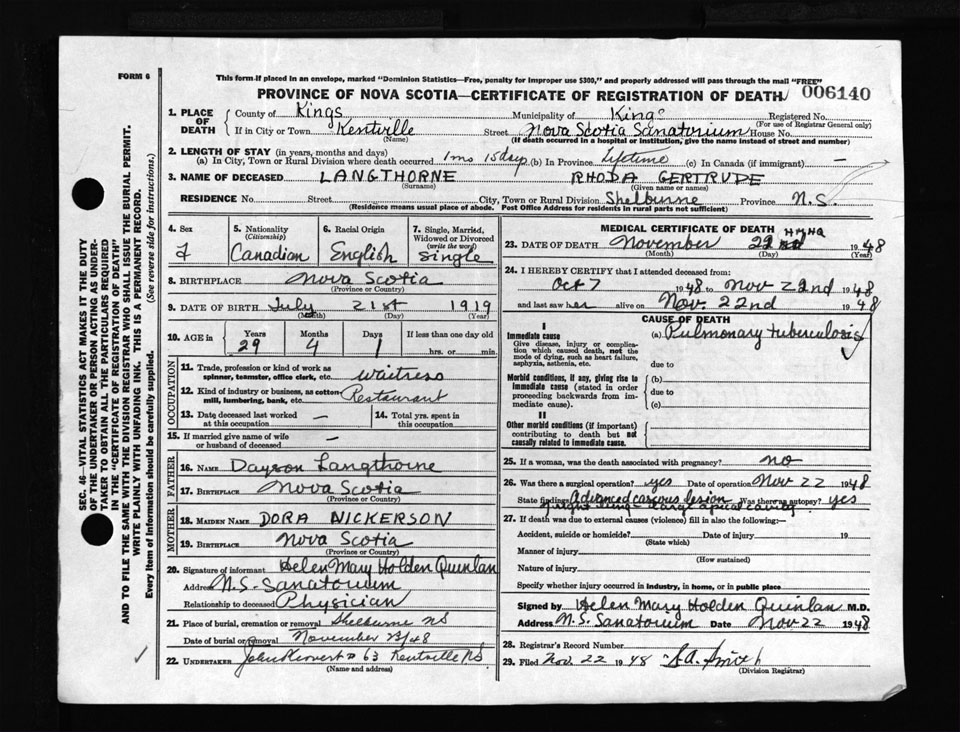 FORM 6
This form if placed in an envelope, marked "Dominion Statistics—Free, penalty for improper use $300," and properly addressed will pass through the mail "FREE"
PROVINCE OF NOVA SCOTIA—CERTIFICATE OF REGISTRATION OF DEATH 006140
SEC. 46—VITAL STATISTICS ACT MAKES IT THE DUTY
OF THE UNDERTAKER OR PERSON ACTING AS UNDER-
TAKER TO OBTAIN ALL THE PARTICULARS REQUIRED
IN THE "CERTIFICATE OF REGISTRATION OF DEATH"
AND TO FILE THE SAME WITH THE DIVISION REGISTRAR WHO SHALL ISSUE THE BURIAL PERMIT.
WRITE PLAINLY WITH UNFADING INK. THIS IS A PERMANENT RECORD.
Every item of Information should be carefully supplied. (See reverse side for instructions.)
1. PLACE OF DEATH County of Kings Municipality of Kings Registered No.
(For use of Registrar General only)
If in City or Town Kentville Street Nova Scotia Sanatorium House No.
(Name) (If death occurred in a hospital or institution, give the name instead of street and number)
2. LENGTH OF STAY (in years, months and days)
(a) In City, Town or Rural Division where death occurred 1 mo 15 days (b) In Province Lifetime (c) In Canada (if immigrant) —
3. NAME OF DECEASED LANGTHORNE RHODA GERTRUDE
(Surname) (Given name or names)
RESIDENCE No. Street City, Town or Rural Division Shelburne Province N.S.
(Residence means usual place of abode. Post Office Address for residents in rural parts not sufficient)
4. Sex F
5. Nationality (Citizenship) Canadian
6. Racial Origin English
7. Single, Married, Widowed or Divorced (write the word) Single
8. BIRTHPLACE Nova Scotia
(Province or Country)
9. DATE OF BIRTH July 21st 1919
(Month) (Day) (Year)
10. AGE in Years 29 Months 4 Days 1 If less than one day old hrs. or min.
OCCUPATION
11. Trade, profession or kind of work as spinner, teamster, office clerk, etc. Waitress
12. Kind of industry or business, as cotton-mill, lumbering, bank, etc. Restaurant
13. Date deceased last worked at this occupation —
14. Total yrs. spent in this occupation
15. If married give name of wife or husband of deceased —
FATHER
16. NAME Dayson Langthorne
17. BIRTHPLACE Nova Scotia
(Province or Country)
MOTHER
18. MAIDEN NAME DORA NICKERSON
19. BIRTHPLACE Nova Scotia
(Province or Country)
20. Signature of informant Helen Mary Holden Quinlan
Address N.S. Sanatorium
Relationship to deceased Physician
21. Place of burial, cremation or removal Shelburne NS
Date of burial or removal November 23/48
22. UNDERTAKER 63 Kentville NS
(Name and address)
MEDICAL CERTIFICATE OF DEATH HMHQ
23. DATE OF DEATH November 22 1948
(Month) (Day) (Year)
24. I HEREBY CERTIFY that I attended deceased from:
Oct 7 1948 to Nov 22nd 1948
and last saw her alive on Nov. 22nd 1948
CAUSE OF DEATH
I
Immediate cause
Give disease, injury or complication which caused death, not the mode of dying, such as heart failure, asphyxia, asthenia, etc.
(a) Pulmonary tuberculosis
due to
Morbid conditions, if any, giving rise to immediate cause (stated in order proceeding backwards from immediate cause).
(b)
due to
(c)
II
Other morbid conditions (if important) contributing to death but not causally related to immediate cause.
25. If a woman, was the death associated with pregnancy? no
26. Was there a surgical operation? yes Date of operation Nov 22 1948
State findings Advanced caseous lesion Was there an autopsy? yes
of right lung - large apical cavity
27. If death was due to external causes (violence) fill in also the following:—
Accident, suicide or homicide? Date of injury 19
(State which)
Manner of injury
(How sustained)
Nature of injury
Specify whether injury occurred in industry, in home, or in public place
Signed by Helen Mary Holden Quinlan M.D.
Address N.S. Sanatorium Date Nov 22 1948
28. Registrar's Record Number
29. Filed Nov. 22 1948 S.A. Smith
(Division Registrar)